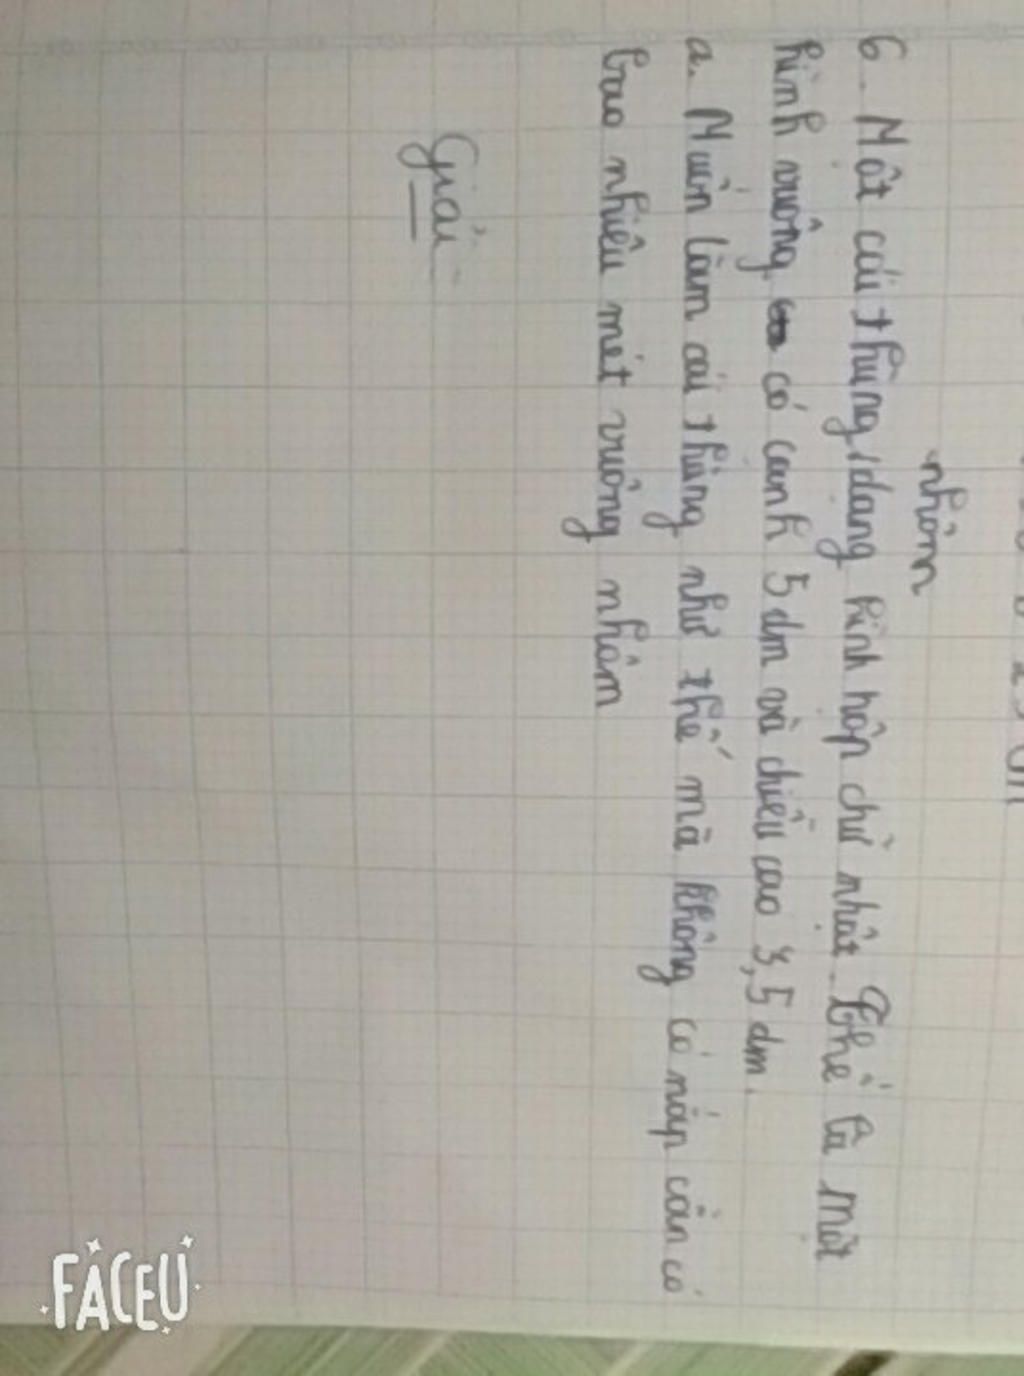 6. Một cái thùng nhôm dạng hình hộp chữ nhật. Thế là một
hình vuông có cạnh 5 dm và chiều cao 3,5 dm.
a. Muốn làm cái thùng như thế mà không có nắp cần có
bao nhiêu mét vuông nhôm
Giải
FACEU